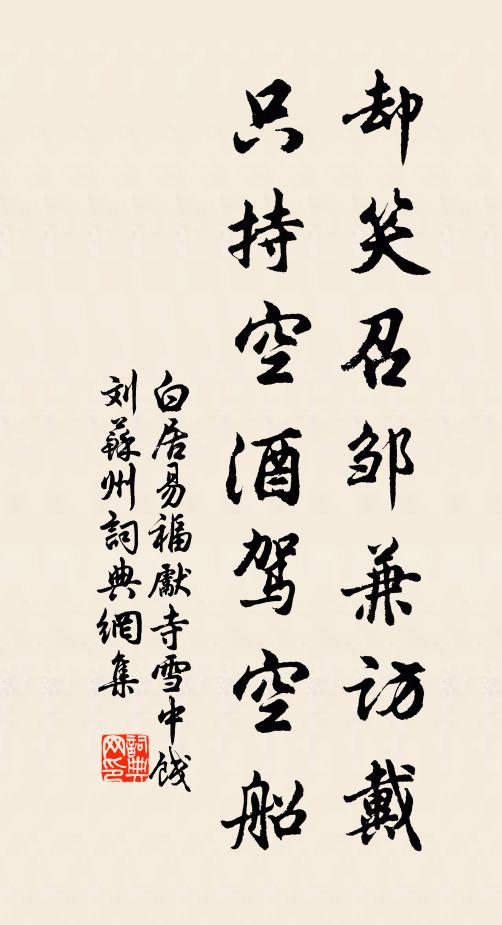 却笑召邹兼访戴
只持空酒驾空船
白居易福獻寺雪中饯
刘蘇州詞典網集
詞典網印